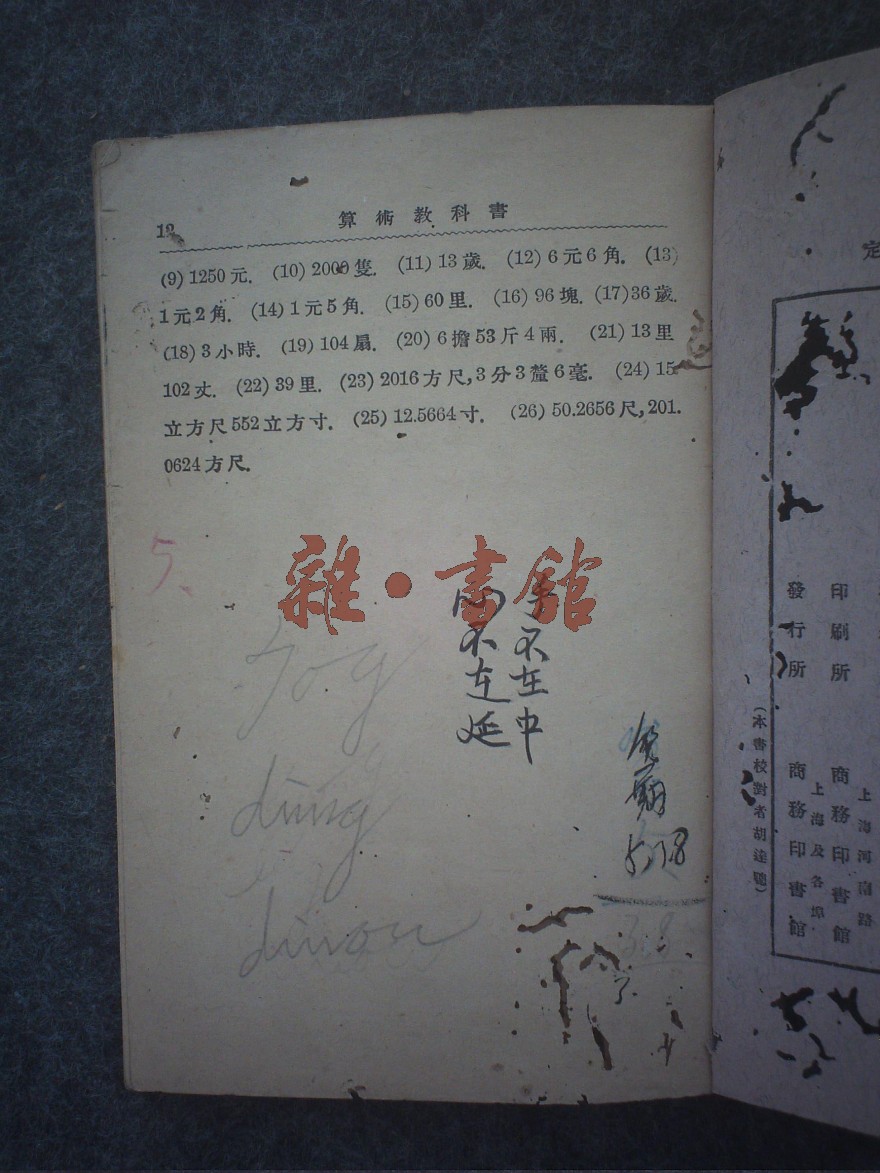 12
算術教科書
(9) 1250元. (10) 2000隻. (11) 13歲. (12) 6元6角. (13)
1元2角. (14) 1元5角. (15) 60里. (16) 96塊. (17) 36歲.
(18) 3小時. (19) 104扇. (20) 6擔53斤4兩. (21) 13里
102丈. (22) 39里. (23) 2016方尺,3分3釐6毫. (24) 15
立方尺552立方寸. (25) 12.5664寸. (26) 50.2656尺,201.
0624方尺.
5
雜·書館
不在中
不在延
5,18
3.8
定
印刷所
發行所
上海河南路
商務印書館
上海及各埠
商務印書館
(本書校對者胡達聰)